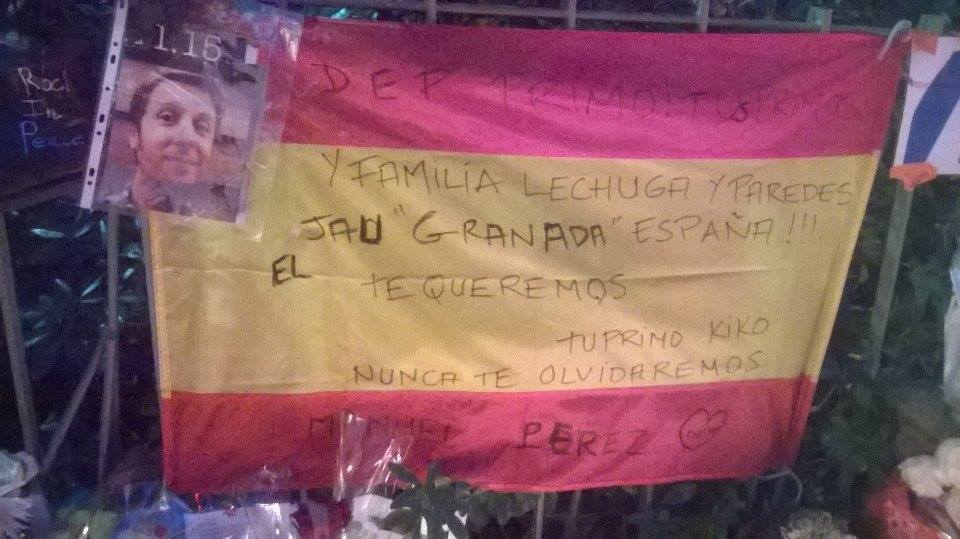 1.15
Rock
In
Peace
DEP PRIMO! TUS PRIMOS
Y FAMILIA LECHUGA Y PAREDES
JAU "GRANADA" ESPAÑA!!!
EL
TE QUEREMOS
TU PRIMO KIKO
NUNCA TE OLVIDAREMOS
MANUEL PEREZ